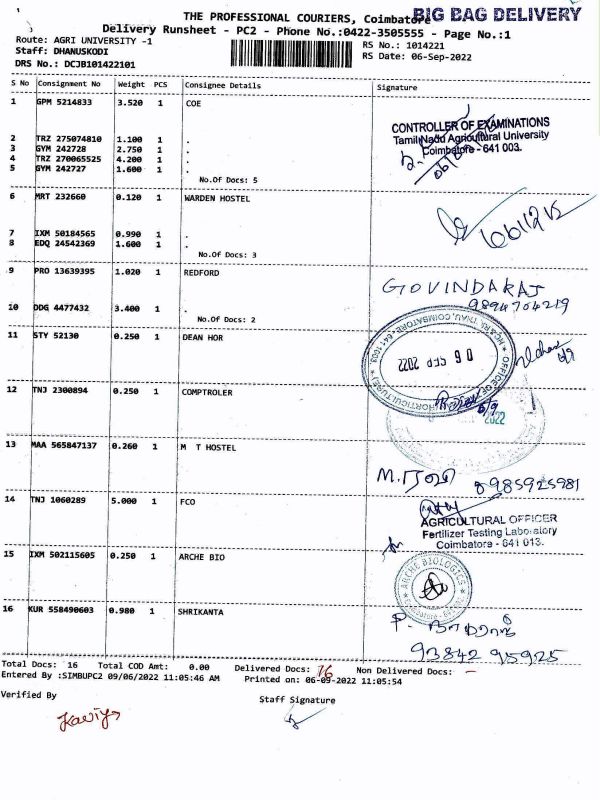 THE PROFESSIONAL COURIERS, Coimbatore
BIG BAG DELIVERY
Delivery Runsheet - PC2 - Phone No.:0422-3505555 - Page No.:1
Route: AGRI UNIVERSITY -1
RS No.: 1014221
Staff: DHANUSKODI
RS Date: 06-Sep-2022
DRS No.: DCJB101422101
S No Consignment No Weight PCS Consignee Details Signature
1 GPM 5214833 3.520 1 COE
CONTROLLER OF EXAMINATIONS
Tamil Nadu Agricultural University
Coimbatore - 641 003.
2 TRZ 275074810 1.100 1 .
3 GYM 242728 2.750 1 .
4 TRZ 270065525 4.200 1 .
5 GYM 242727 1.600 1 .
No.Of Docs: 5
6 MRT 232660 0.120 1 WARDEN HOSTEL
7 IXM 50184565 0.990 1 .
8 EDQ 24542369 1.600 1 .
No.Of Docs: 3
9 PRO 13639395 1.020 1 REDFORD
GOVINDARAJ
9894704219
10 DDG 4477432 3.400 1 .
No.Of Docs: 2
11 STY 52130 0.250 1 DEAN HOR
06 SEP 2022
12 TNJ 2300894 0.250 1 COMPTROLER
6/9
2022
13 MAA 565847137 0.260 1 M T HOSTEL
8985925981
14 TNJ 1060289 5.000 1 FCO
AGRICULTURAL OFFICER
Fertilizer Testing Laboratory
Coimbatore - 641 013.
15 IXM 502115605 0.250 1 ARCHE BIO
ARCHE BIOLOGIE
16 KUR 558490603 0.980 1 SHRIKANTA
93842 95925
Total Docs: 16 Total COD Amt: 0.00 Delivered Docs: 16 Non Delivered Docs: -
Entered By :SIMBUPC2 09/06/2022 11:05:46 AM Printed on: 06-09-2022 11:05:54
Verified By Staff Signature
Kaviya